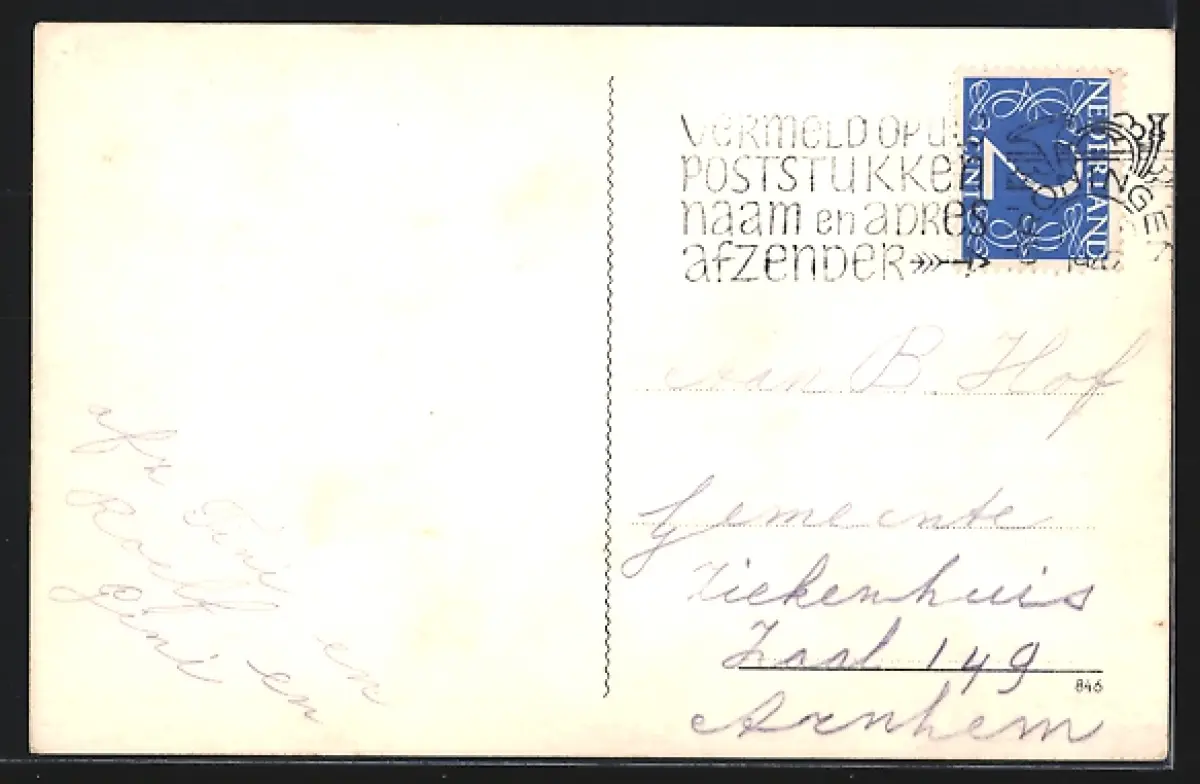 VERMELD OP U
POSTSTUKKEN
naam en adres
afzender
NEDERLAND
CENT
2
van B. Hof
Gemeente
Ziekenhuis
Zaal 149
Arnhem
846
afz
Tini en
Lini en